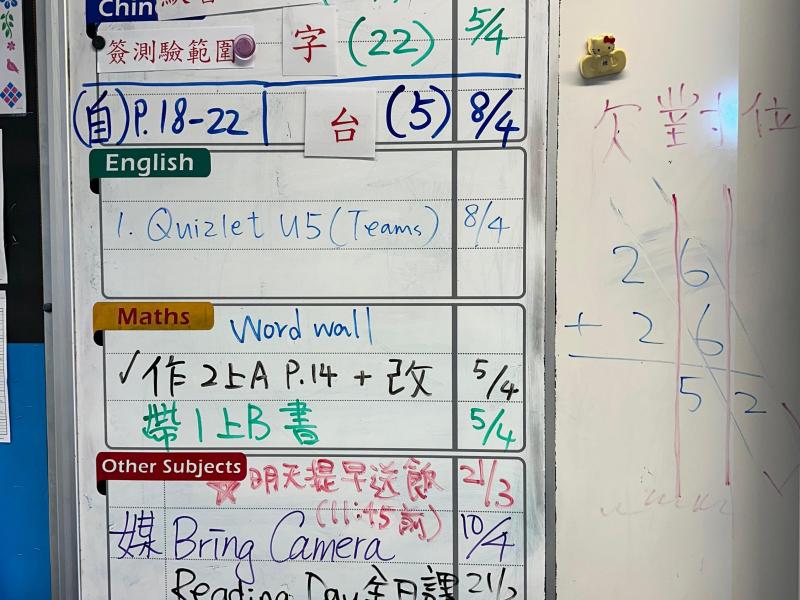 Chin
簽測驗範圍 字 (22) 5/4
(自) P.18-22 台 (5) 8/4
English
1. Quizlet U5 (Teams) 8/4
Maths Word wall
✓作 2上A P.14 + 改 5/4
帶 1上B 書 5/4
Other Subjects ☆明天提早送飯 21/3
(11:45前)
媒 Bring Camera 10/4
Reading Day 全日課 21/2
欠對 位
2 6
+ 2 6
5 2